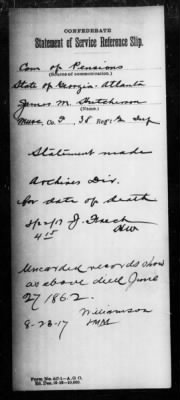 CONFEDERATE
Statement of Service Reference Slip.
Com of Pensions
(Source of communication.)
State of Georgia. Atlanta
James M. Hutcheson
(Name.)
Co. F, 38 Reg't Ga Inf
Statement made
Archives Div.
for date of death
Uncarded records show
as above died June
27 1862.
Williamson
8-23-17
Form No.